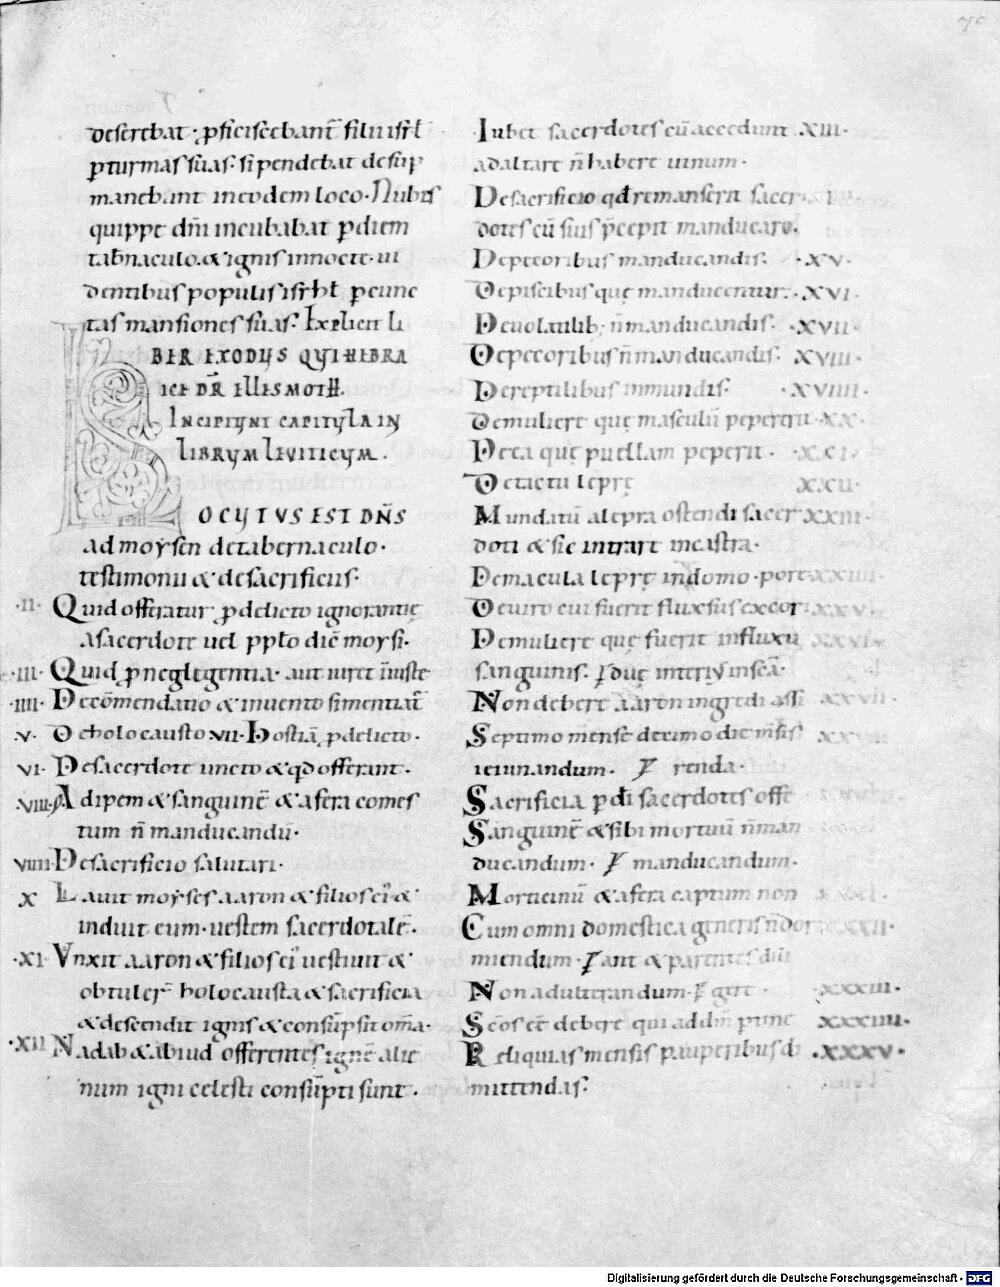 deserebat· p̄ficisceban̄t filii isr̄l
ꝑ turmas suas· si pendebat desup̄
manebant in eodem loco· Nubis
quippe dn̄i incubabat ꝑ diem
tab̄naculo· & ignis in nocte· ui
dentibus populis isr̄hl ꝑ cunc
tas mansiones suas· Explicit li
BER EXODUS QUI HEBRA
ICE DR̄ ELLESMOTH·
INCIPIUNT CAPITULA IN
LIBRUM LEVITICUM·
LOCUTUS EST DN̄S
ad moysen de tabernaculo·
testimonii & de sacrificiis·
·II· Quid offeratur p̄ delicto ignorantię
a sacerdote uel pp̄lo die moysi·
·III· Quid p̄ neglegentia· aut iuret iniuste
·IIII· De cōmendatio & inuento si mentiat̄
V· De holocausto VII· Hostiā p̄ delicto·
VI· De sacerdote uncto & qd̄ offerant·
VIII· Adipem & sanguinē & a fera comes
tum n̄ manducandū·
VIIII· De sacrificio salutari·
X Lauit moyses aaron & filios ei' &
induit eum· uestem sacerdotalē·
·XI· Unxit aaron & filios ei' uestiuit &
obtuler̄ holocausta & sacrificia
& descendit ignis & consūpsit om̄a·
·XII Nadab & abiud offerentes ignē alie
num igni celesti consūpti sunt·
75
Iubet sacerdotes cū accedunt XIII·
ad altare n̄ habere uinum·
De sacrificio qd̄ remanserit sacer
dotes cū suis p̄cepit manducare·
De pecoribus manducandis· ·XV·
De piscibus quę manducentur· ·XVI·
De uolatilib; n̄ manducandis· ·XVII·
De pecoribus n̄ manducandis· XVIII·
De reptilibus inmundis· ·XVIIII·
De muliere quę masculū pepererit ·XX·
De ea quę puellam peperit· ·XXI·
De tactu leprę XXII·
Mundatū a lepra ostendi sacer XXIII·
doti & sic intrare in castra·
De macula leprę in domo· XXIIII·
De uiro cui fuerit fluxsus XXV·
De muliere quę fuerit in fluxu XXVI·
sanguinis·
Non debere aaron ingredi assi XXVII·
Septimo mense decimo die
ieiunandum· renda·
Sacrificia p̄ di sacerdotes offe
Sanguinē & sibi mortuū n̄ man
ducandum· manducandum·
Morticinū & a fera captum non XXXI·
Cum omni domestica generis n̄ dor XXXII·
miendum·
Non adulterandum· XXXIII·
Sc̄os eē debere qui ad dm̄ XXXIIII·
Reliquias mensis pauperibus di ·XXXV·
mittendas·
Digitalisierung gefördert durch die Deutsche Forschungsgemeinschaft · DFG